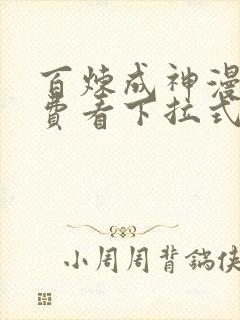 百炼成神漫
费看下拉式
小周周背锅侠